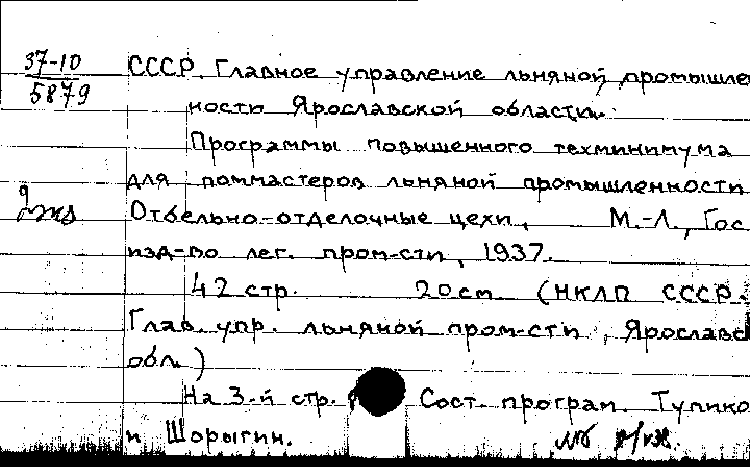 37-10
5879
СССР. Главное управление льняной промышлен
ности Ярославской области.
Программы повышенного техминимума
для поммастеров льняной промышленности
Отбельно-отделочные цехи, М.-Л., Гос
изд-во лег. пром-сти, 1937.
42 стр. 20 см (НКЛП СССР.
Глав. упр. льняной пром-сти, Ярославс
обл.)
На 3-й стр. Сост. програм. Тупико
и Шорыгин.